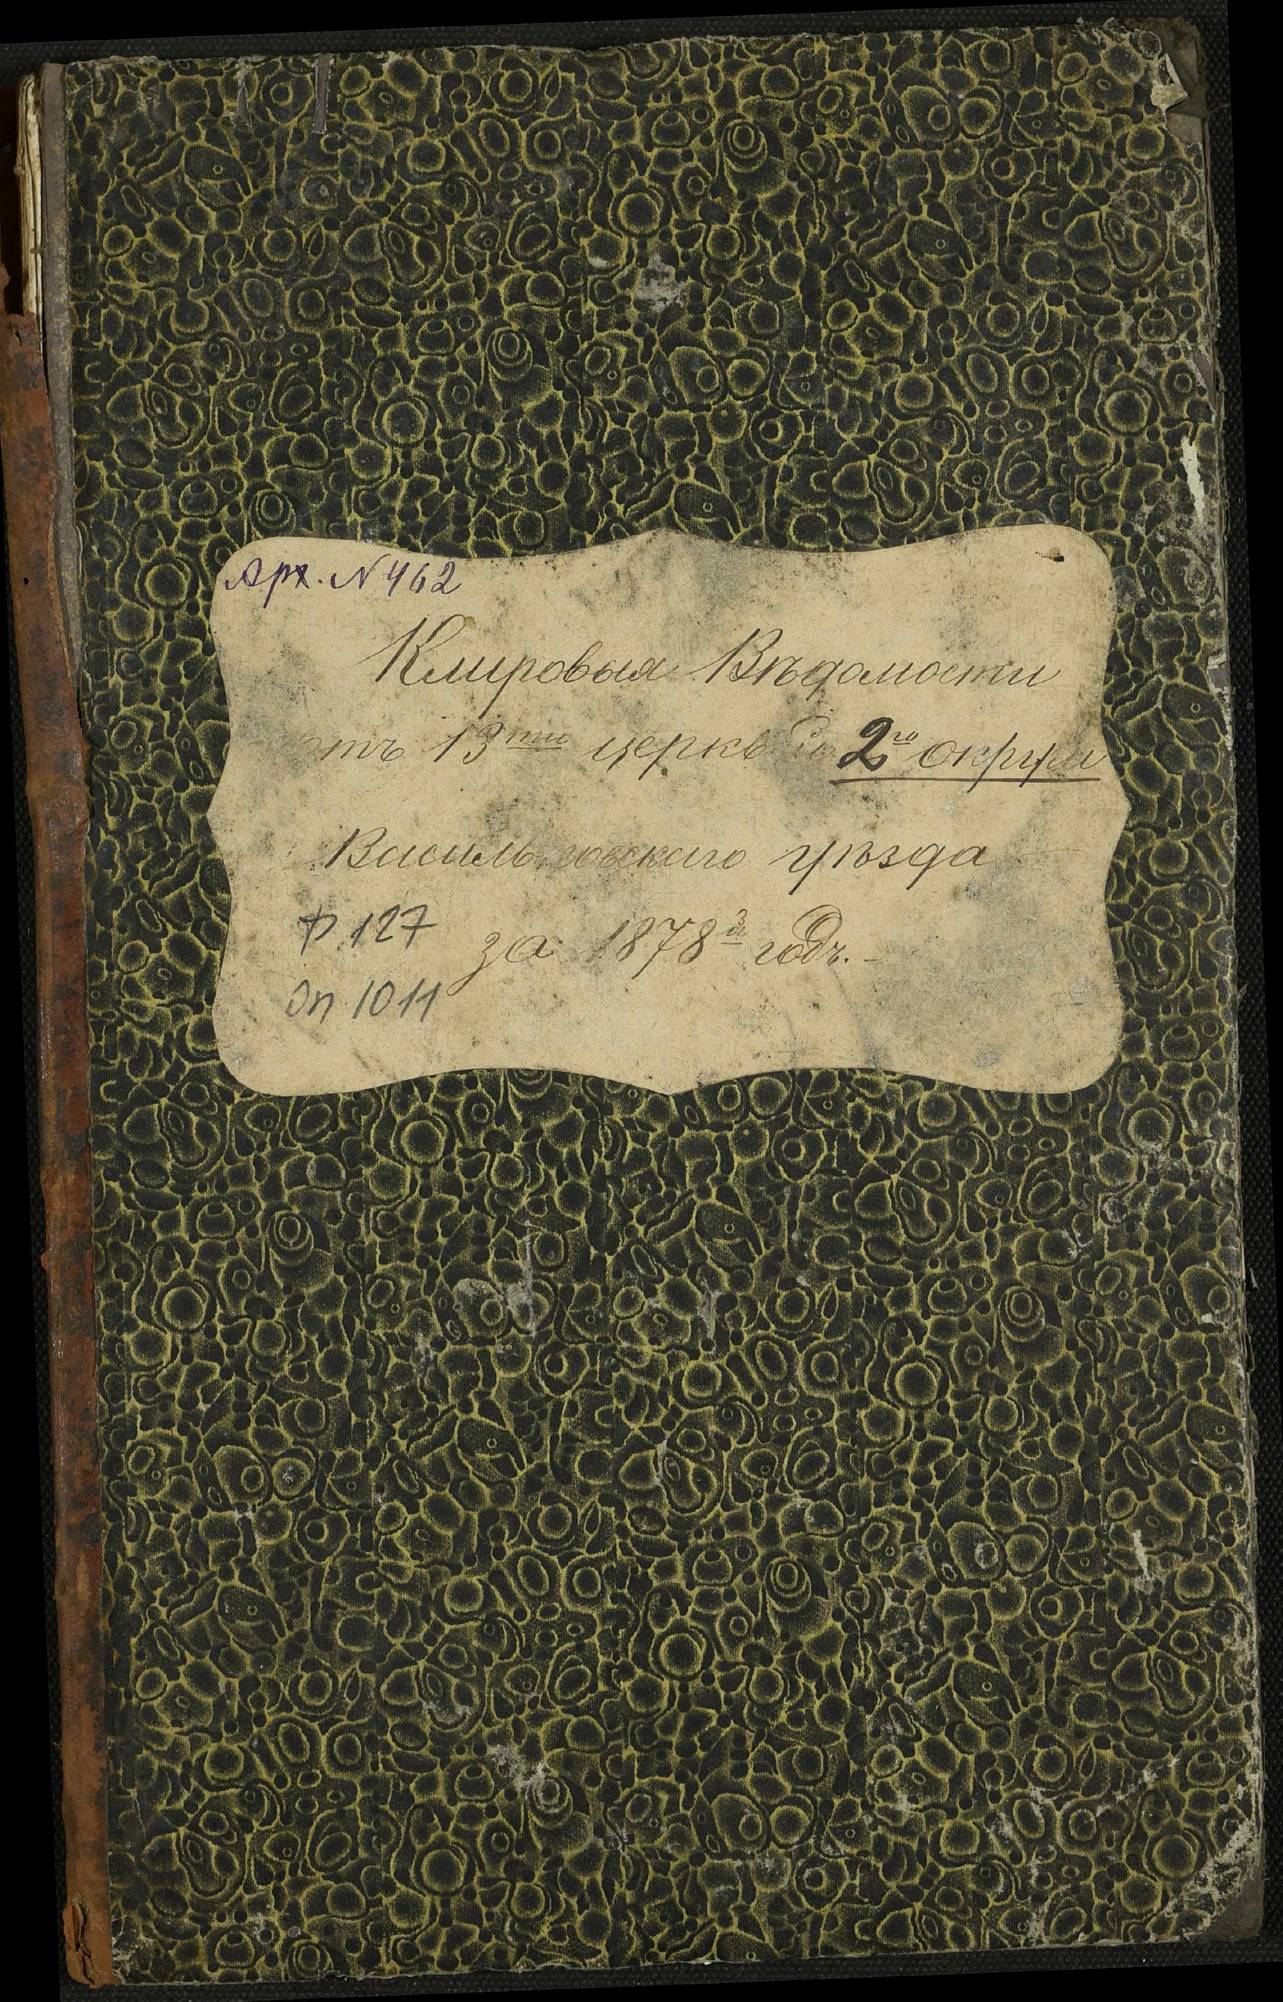 Арх. N 462
Клировыя Вѣдомости
отъ 13ти церкв 2го округа
Васильковскаго уѣзда
Ф 127 за 1878й годъ.
Оп 1011